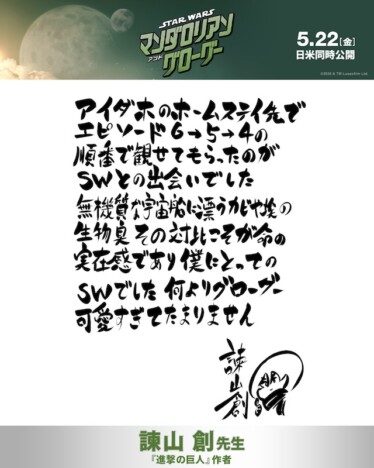 STAR WARS
マンダロリアン
アンド
グローグー
5.22[金]
日米同時公開
アイダホのホームステイ先で
エピソード6→5→4の
順番で観せてもらったのが
SWとの出会いでした
無機質な宇宙船に漂うカビや埃の
生物臭 その対比こそが命の
実在感であり僕にとっての
SWでした 何よりグローグー
可愛すぎてたまりません
諫山創
諫山 創先生
『進撃の巨人』作者